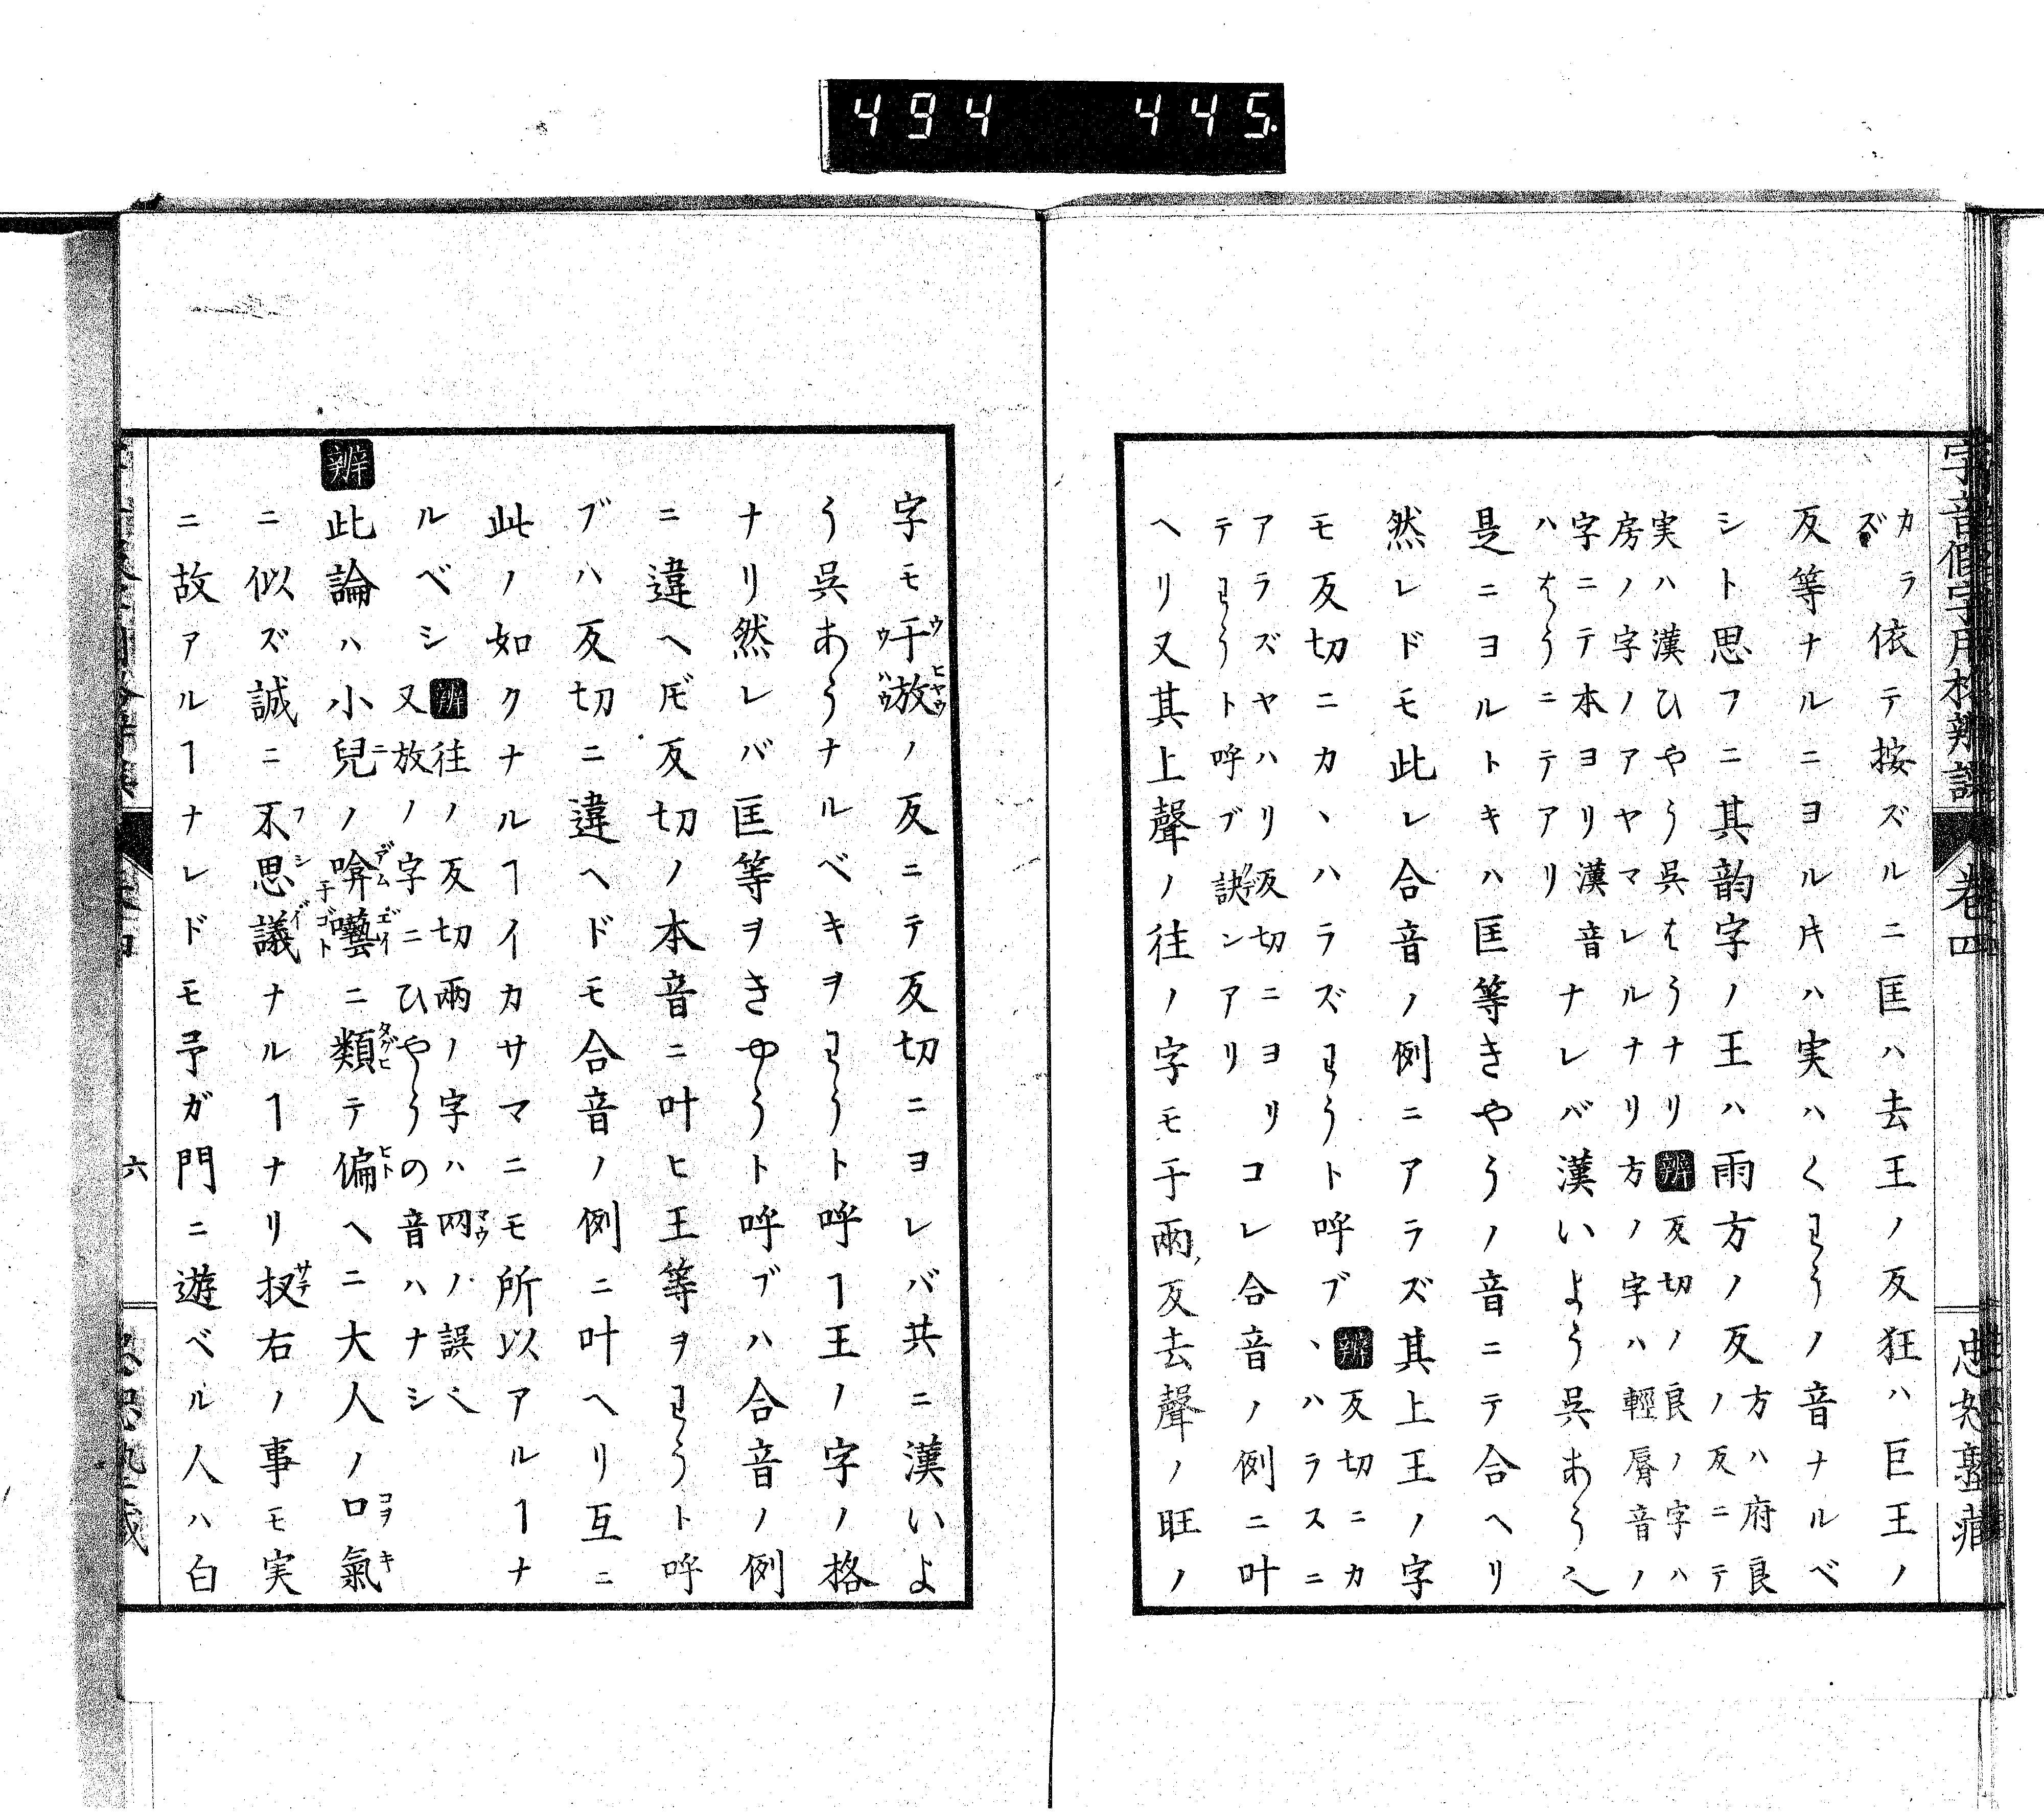 494 445.
字音假字用格辨誤 卷四 忠恕塾藏
カラズ 依テ按ズルニ匡ハ去王ノ反狂ハ巨王ノ
反等ナルニヨル𪜈ハ実ハくわうノ音ナルベ
シト思フニ其韵字ノ王ハ雨方ノ反 方ハ府良ノ反ニテ
実ハ漢ひやう呉はうナリ 辨 反切ノ良ノ字ハ
房ノ字ノアヤマレルナリ方ノ字ハ輕脣音ノ
字ニテ本ヨリ漢音
ハはうニテアリ ナレバ漢いよう呉あうヘ
是ニヨルトキハ匡等きやうノ音ニテ合ヘリ
然レドモ此レ合音ノ例ニアラズ其上王ノ字
モ反切ニカヽハラズわうト呼ブ 辨 反切ニカ
ヽハラスニ
アラズヤハリ反切ニヨリ
テわうト呼ブ訣ンアリ コレ合音ノ例ニ叶
ヘリ又其上聲ノ往ノ字モ于兩反去聲ノ旺ノ
字モ于放ノ反ニテ反切ニヨレバ共ニ漢いよ
う呉あうナルベキヲわうト呼ヿ王ノ字ノ格
ナリ然レバ匡等ヲきやうト呼ブハ合音ノ例
ニ違ヘドモ反切ノ本音ニ叶ヒ王等ヲわうト呼
ブハ反切ニ違ヘドモ合音ノ例ニ叶ヘリ互ニ
此ノ如クナルヿイカサマニモ所以アルヿナ
ルベシ 辨 往ノ反切兩ノ字ハ网ノ誤ヘ
又放ノ字ニひやうの音ハナシ
辨 此論ハ小兒ノ唵囈ニ類テ偏ヘニ大人ノ口氣
ニ似ズ誠ニ不思議ナルヿナリ扨右ノ事モ実
ニ故アルヿナレドモ予ガ門ニ遊ベル人ハ白
六